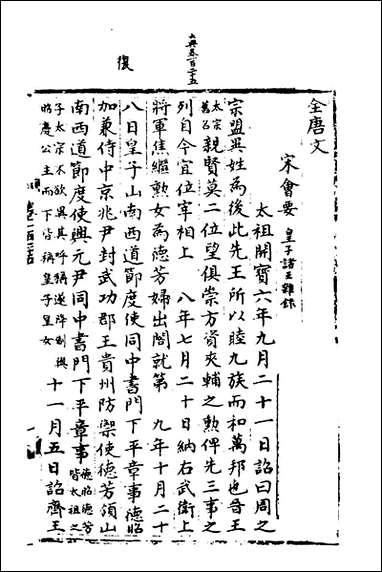 全唐文
宋會要 皇子諸王雜錄
太祖開寶六年九月二十一日詔曰周之
宗盟異姓為後此先王所以睦九族而和萬邦也晉王
太宗舊名 親賢莫二位望俱崇方資夾輔之勲俾先三事之
列自今宜位宰相上 八年七月二十日納右武衛上
將軍焦繼勲女為德芳婦出閤就第 九年十月二十
八日皇子山南西道節度使同中書門下平章事德昭
加兼侍中京兆尹封武功郡王貴州防禦使德芳領山
南西道節度使興元尹同中書門下平章事 德昭德芳皆太祖之
子太宗不欲異其呼稱遂降制與昭慶公主而下皆稱皇子皇女 十一月五日詔齊王
復